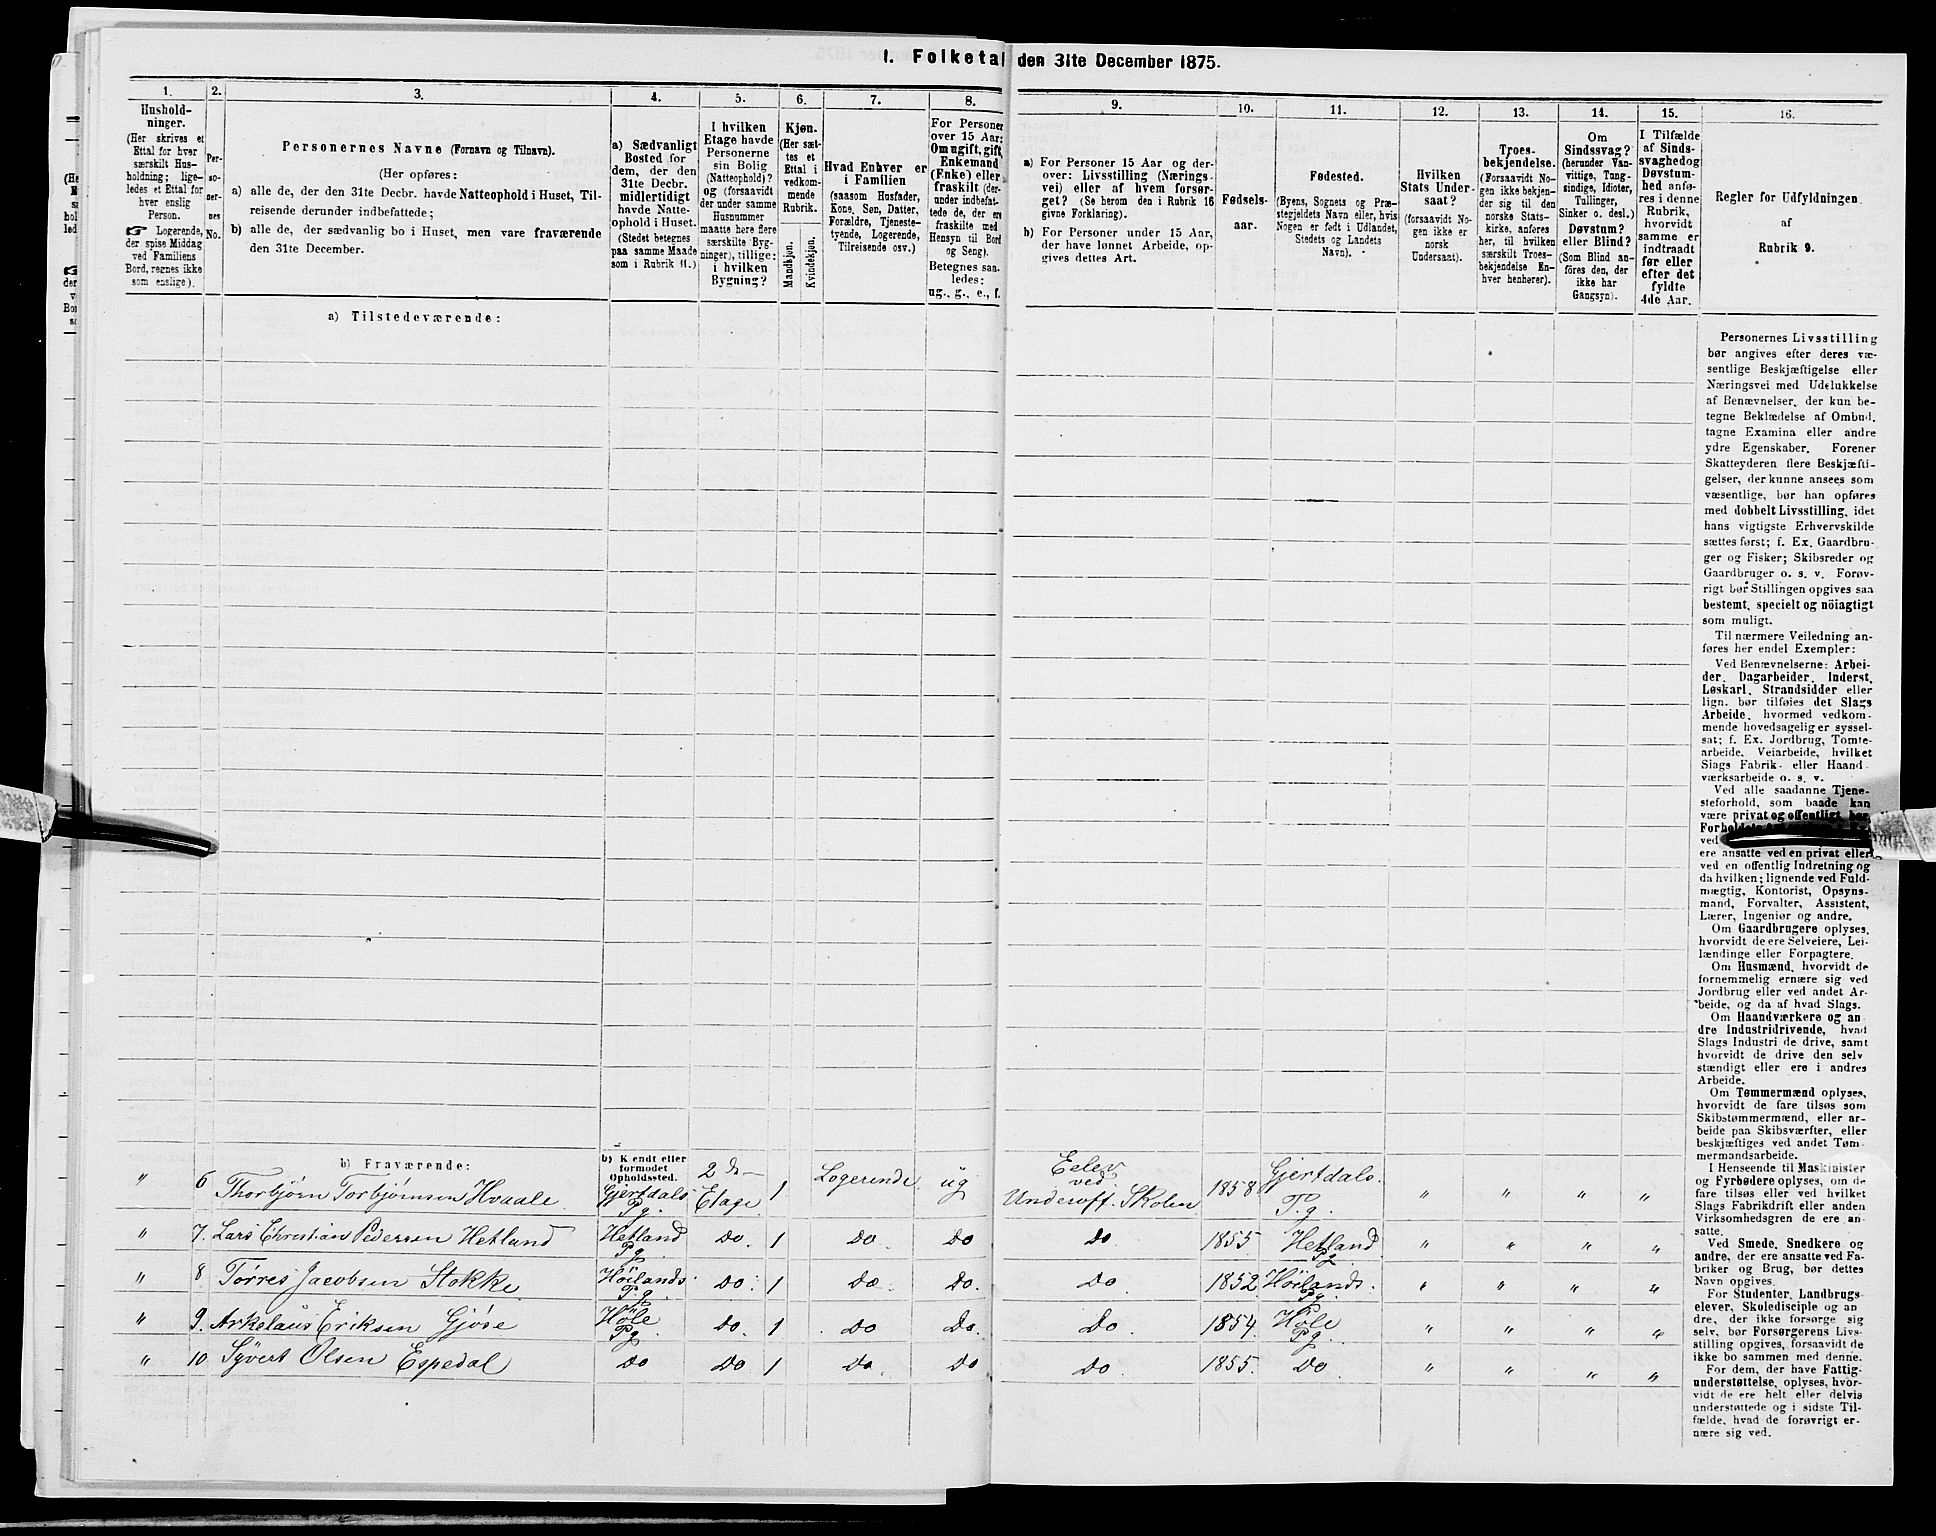 I. Folketal den 31te December 1875.
1.
Hushold-
ninger.
(Her skrives et
Ettal for hver
særskilt Hus-
holdning; lige-
ledes et Ettal for
hver enslig
Person.
☞ Logerende,
der spise Middag
ved Familiens
Bord, regnes ikke
som enslige).
2.
Per-
so-
ner-
nes
No.
3.
Personernes Navne (Fornavn og Tilnavn).
(Her opføres:
a) alle de, der den 31te Decbr. havde Natteophold i Huset, Til-
reisende derunder indbefattede;
b) alle de, der sædvanlig bo i Huset, men vare fraværende
den 31te December.
4.
a) Sædvanligt
Bosted for
dem, der den
31te Decbr.
midlertidigt
havde Natte-
ophold i Huset.
(Stedet betegnes
paa samme Maade
som i Rubrik 11.)
5.
I hvilken
Etage havde
Personerne
sin Bolig
(Natteophold)?
og (forsaavidt
der under samme
Husnummer
maatte høre flere
særskilte Byg-
ninger), tillige:
i hvilken
Bygning?
6.
Kjøn.
(Her sæt-
tes et
Ettal i
vedkom-
mende
Rubrik.
Mandkjøn.
Kvindekjøn.
7.
Hvad Enhver er
i Familien
(saasom Husfader,
Kone, Søn, Datter,
Forældre, Tjeneste-
tyende, Logerende,
Tilreisende osv.)
8.
For Personer
over 15 Aar:
Om ugift, gift,
Enkemand
(Enke) eller
fraskilt (der-
under indbefat-
tede de, der ere
fraskilte med
Hensyn til Bord
og Seng).
Betegnes saa-
ledes:
ug., g., e., f.
9.
a) For Personer 15 Aar og der-
over: Livsstilling (Nærings-
vei) eller af hvem forsør-
get? (Se herom den i Rubrik 16
givne Forklaring).
b) For Personer under 15 Aar,
der have lønnet Arbeide, op-
gives dettes Art.
10.
Fødsels-
aar.
11.
Fødested.
(Byens, Sognets og Præ-
stegjeldets Navn eller, hvis
Nogen er født i Udlandet,
Stedets og Landets
Navn).
12.
Hvilken
Stats Under-
saat?
(forsaavidt No-
gen ikke er
norsk
Undersaat).
13.
Troes-
bekjendelse.
(Forsaavidt No-
gen ikke bekjen-
der sig til den
norske Stats-
kirke, anføres
her, til hvilken
særskilt Troes-
bekjendelse En-
hver henhører).
14.
Om
Sindssvag?
(herunder Van-
vittige, Tung-
sindige, Idioter,
Tullinger,
Sinker o. desl.)
Døvstum?
eller Blind?
(Som Blind an-
føres den, der
ikke har
Gangsyn).
15.
I Tilfælde
af Sinds-
svaghed og
Døvstum-
hed anfø-
res i denne
Rubrik,
hvorvidt
samme er
indtraadt
før eller
efter det
fyldte
4de Aar.
16.
Regler for Udfyldningen
af
Rubrik 9.
a) Tilstedeværende:
b) Fraværende:
b) Kendt eller
formodet
Opholdssted.
" 6 Thorbjörn Torbjörnsen Hvaale Gjertdals Pg. 2d- Etage 1 Logerende ug Eelev ved Underoff. Skolen 1858 Gjertdals. P.g. " " " "
" 7. Lars Christian Pedersen Hetland Hetland Pg Do. 1 Do Do Do 1855 Hetland Pg " " " "
" 8 Törres Jacobsen Stokke Höilands P.g. Do. 1 Do Do. Do 1852 Höilands. Pg. " " " "
" 9. Arkelaus Eriksen Gjöse Höle Pg. Do. 1 Do Do. Do 1854. Höle Pg. " " " "
" 10. Syvert Olsen Espedal Do Do 1 Do. Do Do 1855. Do " " " "
Personernes Livsstilling
bør angives efter deres væ-
sentlige Beskjæftigelse eller
Næringsvei med Udelukkelse
af Benævnelser, der kun be-
tegne Beklædelse af Ombud,
tagne Examina eller andre
ydre Egenskaber. Forener
Skatteyderen flere Beskjæfti-
gelser, der kunne ansees som
væsentlige, bør han opføres
med dobbelt Livsstilling, idet
hans vigtigste Erhvervskilde
sættes først; f. Ex. Gaardbru-
ger og Fisker; Skibsreder og
Gaardbruger o. s. v. Forøv-
rigt bør Stillingen opgives saa
bestemt, specielt og nöiagtigt
som muligt.
Til nærmere Veiledning an-
føres her endel Exempler:
Ved Benævnelserne: Arbei-
der, Dagarbeider, Inderst,
Løskarl, Strandsidder eller
lign. bør tilføies det Slags
Arbeide, hvormed vedkom-
mende hovedsagelig er syssel-
sat; f. Ex. Jordbrug, Tomte-
arbeide, Veiarbeide, hvilket
Slags Fabrik- eller Haand-
værksarbeide o. s. v.
Ved alle saadanne Tjene-
steforhold, som baade kan
være privat og offentligt, bør
Forholdets
ved
ere ansatte ved en privat eller
ved en offentlig Indretning og
da hvilken; lignende ved Fuld-
mægtig, Kontorist, Opsyns-
mand, Forvalter, Assistent,
Lærer, Ingeniør og andre.
Om Gaardbrugere oplyses,
hvorvidt de ere Selveiere, Lei-
lændinge eller Forpagtere.
Om Husmænd, hvorvidt de
fornemmelig ernære sig ved
Jordbrug eller ved andet Ar-
beide, og da af hvad Slags.
Om Haandværkere og an
dre Industridrivende, hvad
Slags Industri de drive, samt
hvorvidt de drive den selv
stændigt eller ere i andres
Arbeide.
Om Tømmermænd oplyses,
hvorvidt de fare tilsøs som
Skibstømmermænd, eller ar-
beide paa Skibsværfter, eller
beskjæftiges ved andet Tøm-
mermandsarbeide.
I Henseende til Maskinister
og Fyrbødere oplyses, om de
fare tilsøs eller ved hvilket
Slags Fabrikdrift eller anden
Virksomhedsgren de ere an-
satte.
Ved Smede, Snedkere og
andre, der ere ansatte ved Fa-
briker og Brug, bør dettes
Navn opgives.
For Studenter, Landbrugs-
elever, Skoledisciple og an
dre, der ikke forsørge sig
selv, bør Forsørgerens Livs-
stilling opgives, forsaavidt de
ikke bo sammen med denne.
For dem, der have Fattig-
understøttelse, oplyses, hvor-
vidt de ere helt eller delvis
understøttede og i sidste Til-
fælde, hvad de forøvrigt er-
nære sig ved.